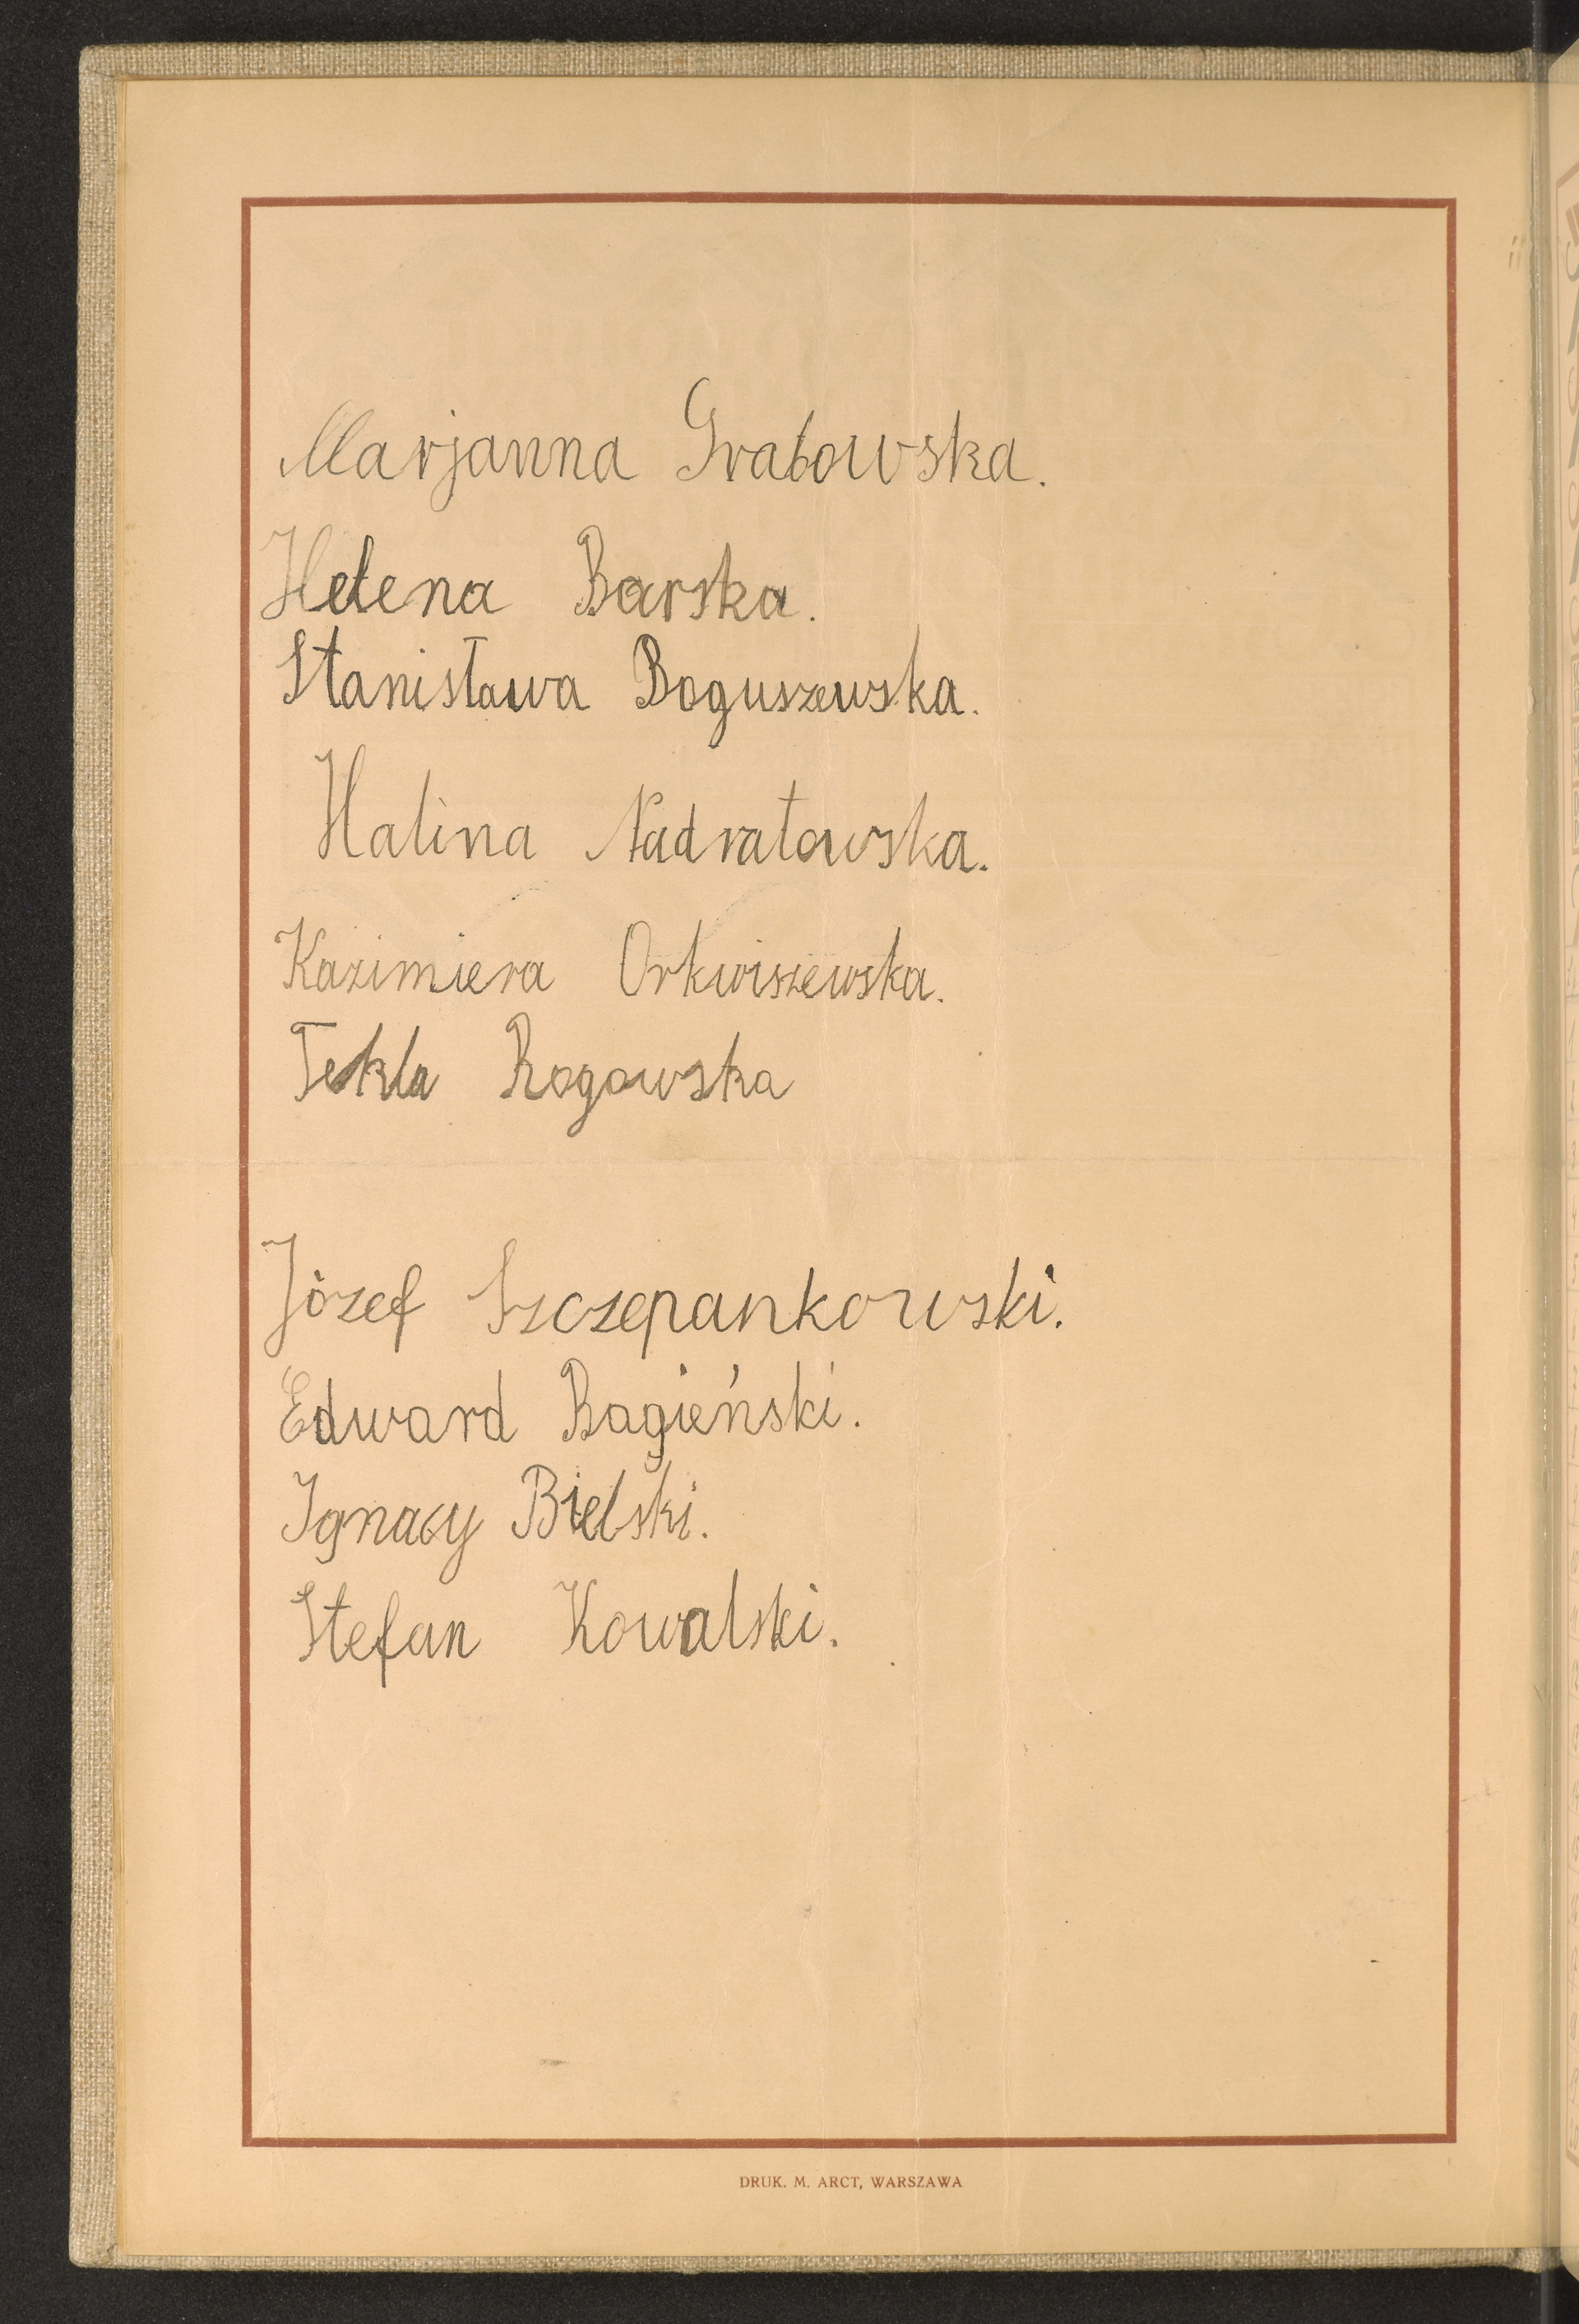 Marjanna Grabowska.
Helena Barska.
Stanisława Boguszewska.
Halina Nadratowska.
Kazimiera Orkwiszewska.
Tekla Rogowska
Józef Szczepankowski.
Edward Bagieński.
Ignacy Bielski.
Stefan Kowalski.
DRUK. M. ARCT, WARSZAWA